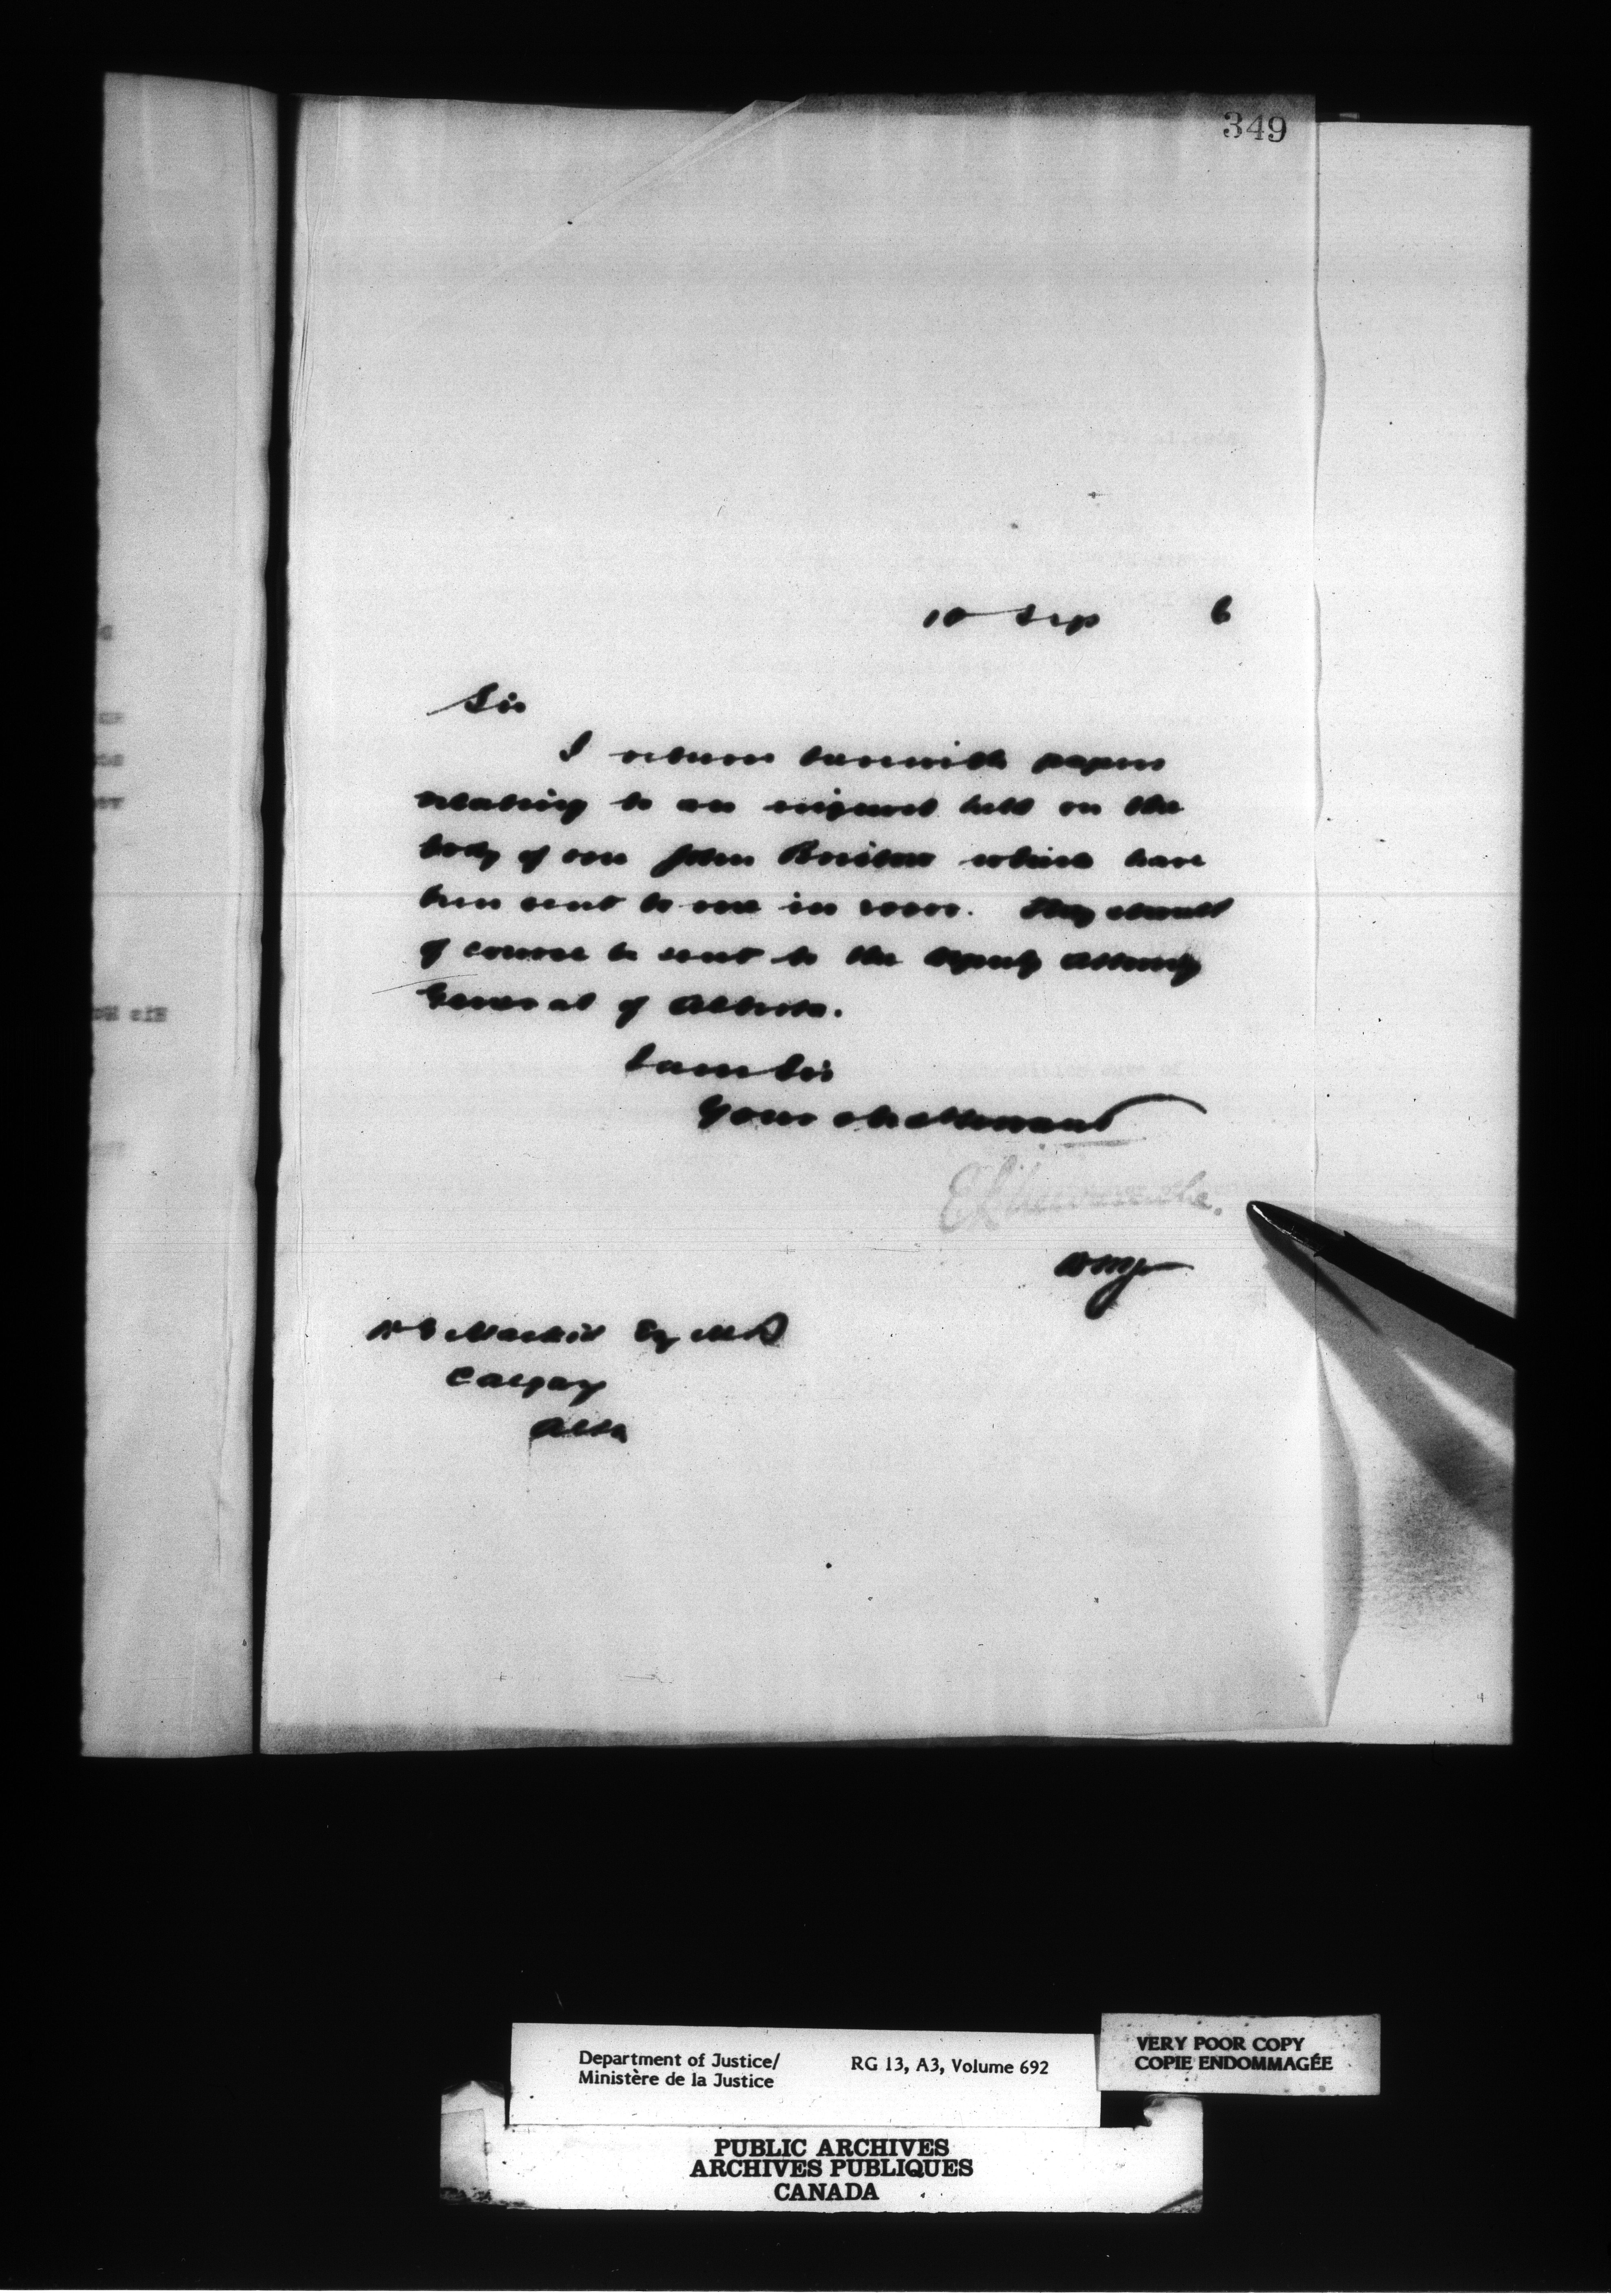 349
10 Sep 6
Sir
I return herewith papers
relating to an inquest held on the
body of one John Bristow which have
been sent to me in error. They should
of course be sent to the Deputy Attorney
General of Alberta.
I am Sir
Your obt servant
WMG
Mackid Esq M D
Calgary
Alta
Department of Justice/
Ministère de la Justice
RG 13, A3, Volume 692
VERY POOR COPY
COPIE ENDOMMAGÉE
PUBLIC ARCHIVES
ARCHIVES PUBLIQUES
CANADA